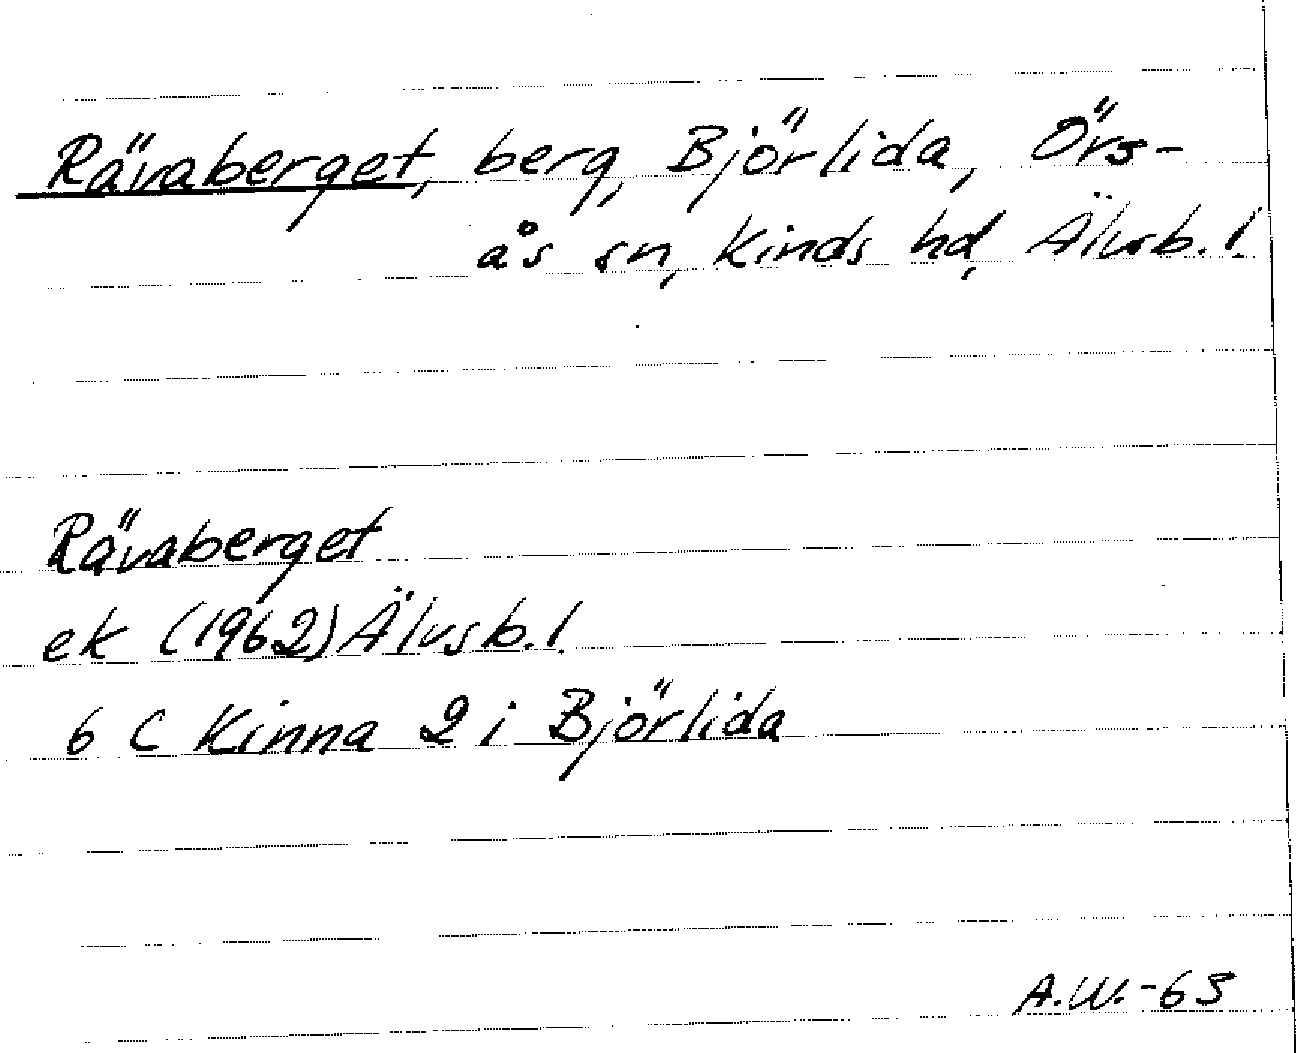 Rävaberget, berg, Björlida, Örs-
ås sn, Kinds hd, Älvsb. l.
Rävaberget
ek (1962) Älvsb. l.
6 C Kinna 2 i Björlida
A.W.-63